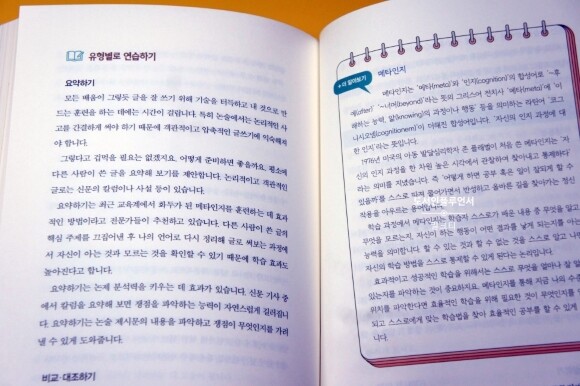 유형별로 연습하기
요약하기
모든 배움이 그렇듯 글을 잘 쓰기 위해 기술을 터득하고 내 것으로 만
드는 훈련을 하는 데에는 시간이 걸립니다. 특히 논술에서는 논리적인 사
고를 간결하게 써야 하기 때문에 객관적이고 압축적인 글쓰기에 익숙해져
야 합니다.
그렇다고 겁먹을 필요는 없겠지요. 어떻게 준비하면 좋을까요. 평소에
다른 사람이 쓴 글을 요약해 보기를 제안합니다. 논리적이고 객관적인
글로는 신문의 칼럼이나 사설 등이 있습니다.
요약하기는 최근 교육계에서 화두가 된 메타인지를 훈련하는 데 효과
적인 방법이라고 전문가들이 추천하고 있습니다. 다른 사람이 쓴 글의
핵심 주제를 끄집어낸 후 나의 언어로 다시 정리해 글로 써보는 과정에
서 자신이 아는 것과 모르는 것을 확인할 수 있기 때문에 학습 효과도
높아진다고 합니다.
요약하기는 논제 분석력을 키우는 데 효과가 있습니다. 신문 기사 중
에서 칼럼을 요약해 보면 쟁점을 파악하는 능력이 자연스럽게 길러집니
다. 요약하기는 논술 제시문의 내용을 파악하고 쟁점이 무엇인지를 가려
낼 수 있게 도와줍니다.
비교·대조하기
+ 더 알아보기
메타인지
메타인지는 '메타(meta)'와 '인지(cognition)'의 합성어로 '~후
에(after)' '~너머(beyond)'라는 뜻의 그리스어 전치사 '메타(meta)'에 '이
해하는 능력, 앎(knowing)의 과정이나 행동' 등을 의미하는 라틴어 '코그
니시오넴(cognitionem)'이 더해진 합성어입니다. '자신의 인지 과정에 대
한 인지'라는 뜻입니다.
1976년 미국의 아동 발달심리학자 존 플래벌이 처음 쓴 메타인지는 '자
신의 인지 과정을 한 차원 높은 시각에서 관찰하여 찾아내고 통제하다'
라는 의미를 지녔습니다. 즉 '어떻게 하면 공부 혹은 일이 잘되게 할 수
있을까'를 스스로 따져 물어가면서 반성하고 올바른 길을 찾아가는 정신
작용을 아우르는 용어입니다.
학습 과정에서 메타인지는 학습자 스스로가 배운 내용 중 무엇을 알고
무엇을 모르는지, 자신이 하는 행동이 어떤 결과를 낳게 되는지를 아는
능력을 의미합니다. 할 수 있는 것과 할 수 없는 것을 스스로 알고 나면
자신의 학습 방법을 스스로 통제할 수 있게 된다는 논리입니다.
효과적이고 성공적인 학습을 위해서는 스스로 무엇을 얼마나 잘 알
있는지를 파악하는 것이 중요하지요. 메타인지를 통해 지금 나의 수준
위치를 파악한다면 효율적인 학습을 위해 필요한 것이 무엇인지를
되고 스스로에게 맞는 학습법을 찾아 효율적인 공부를 할 수 있게
도서인플루언서